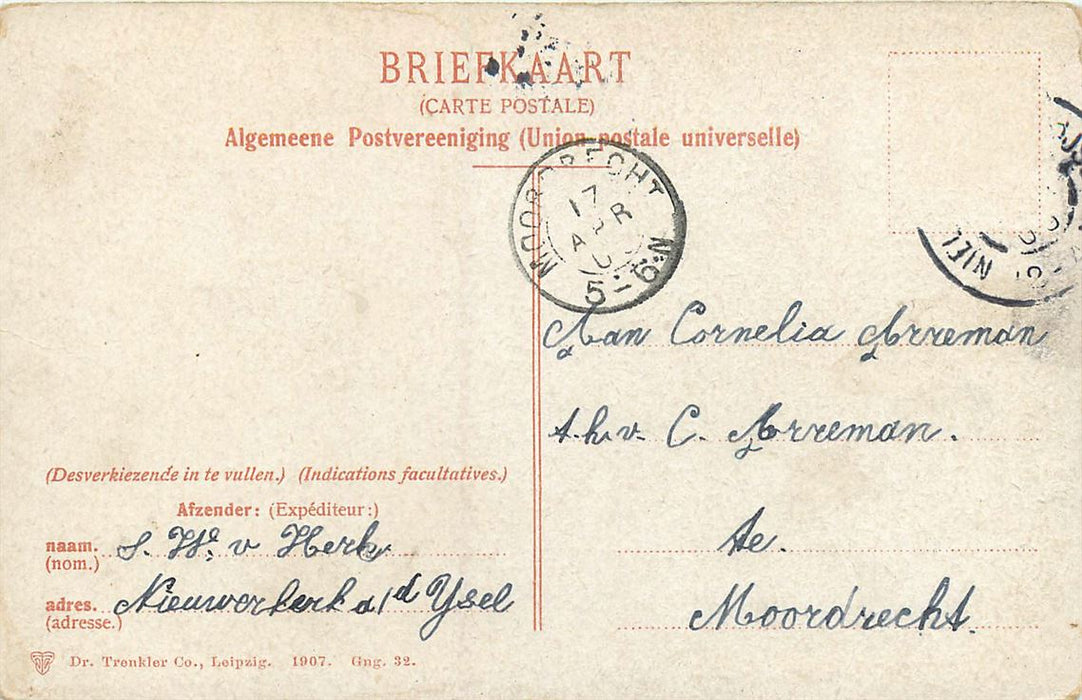 BRIEFKAART
(CARTE POSTALE)
Algemeene Postvereeniging (Union postale universelle)
MOORDRECHT
17
5-6.N
Aan Cornelia Arreman
t.h.v. C. Arreman.
te.
Moordrecht.
(Desverkiezende in te vullen.) (Indications facultatives.)
Afzender: (Expéditeur:)
naam. S. We. v Herk
(nom.)
adres. Nieuwerkerk a/d Ysel
(adresse.)
Dr. Trenkler Co., Leipzig. 1907. Gng. 32.